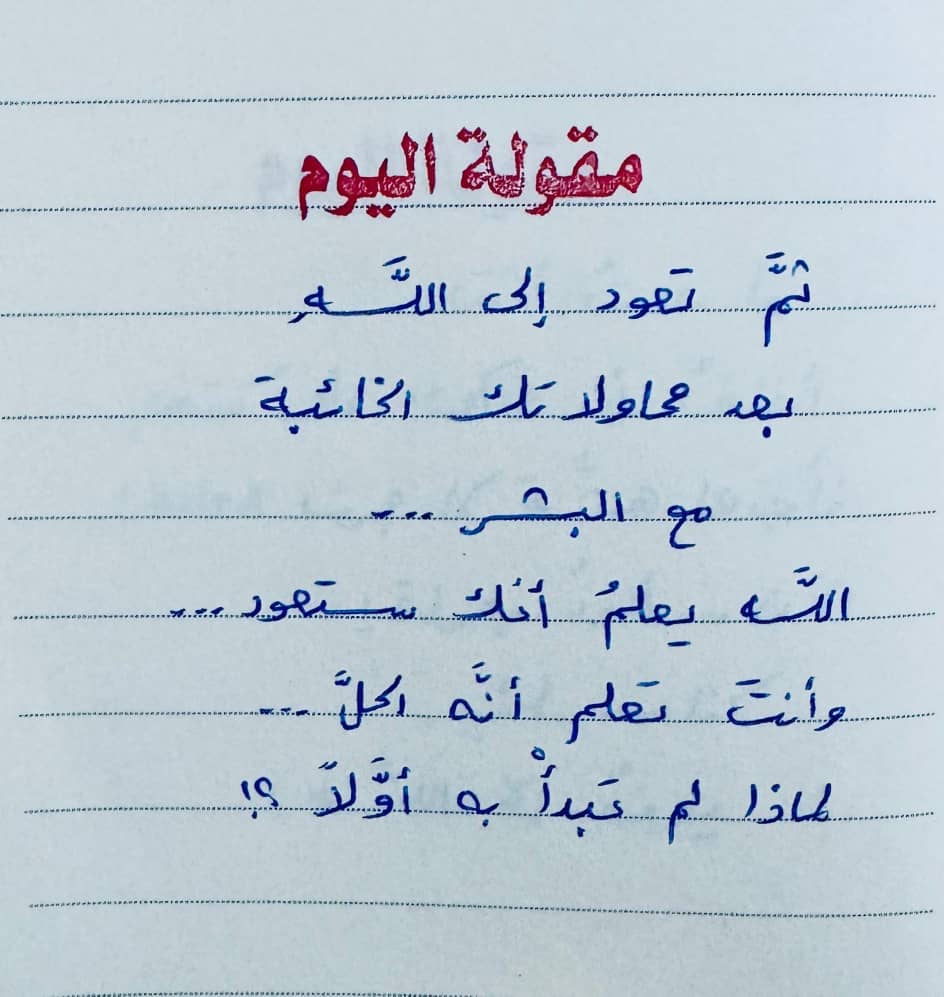 مقولة اليوم
ثمَّ تعود إلى اللَّهِ
بعد محاولاتك الخائبة
مع البشر ...
اللَّه يعلمُ أنك ستعود ...
وأنتَ تعلم أنَّه الحلَّ ...
لماذا لم تبدأْ به أوَّلاً ؟!